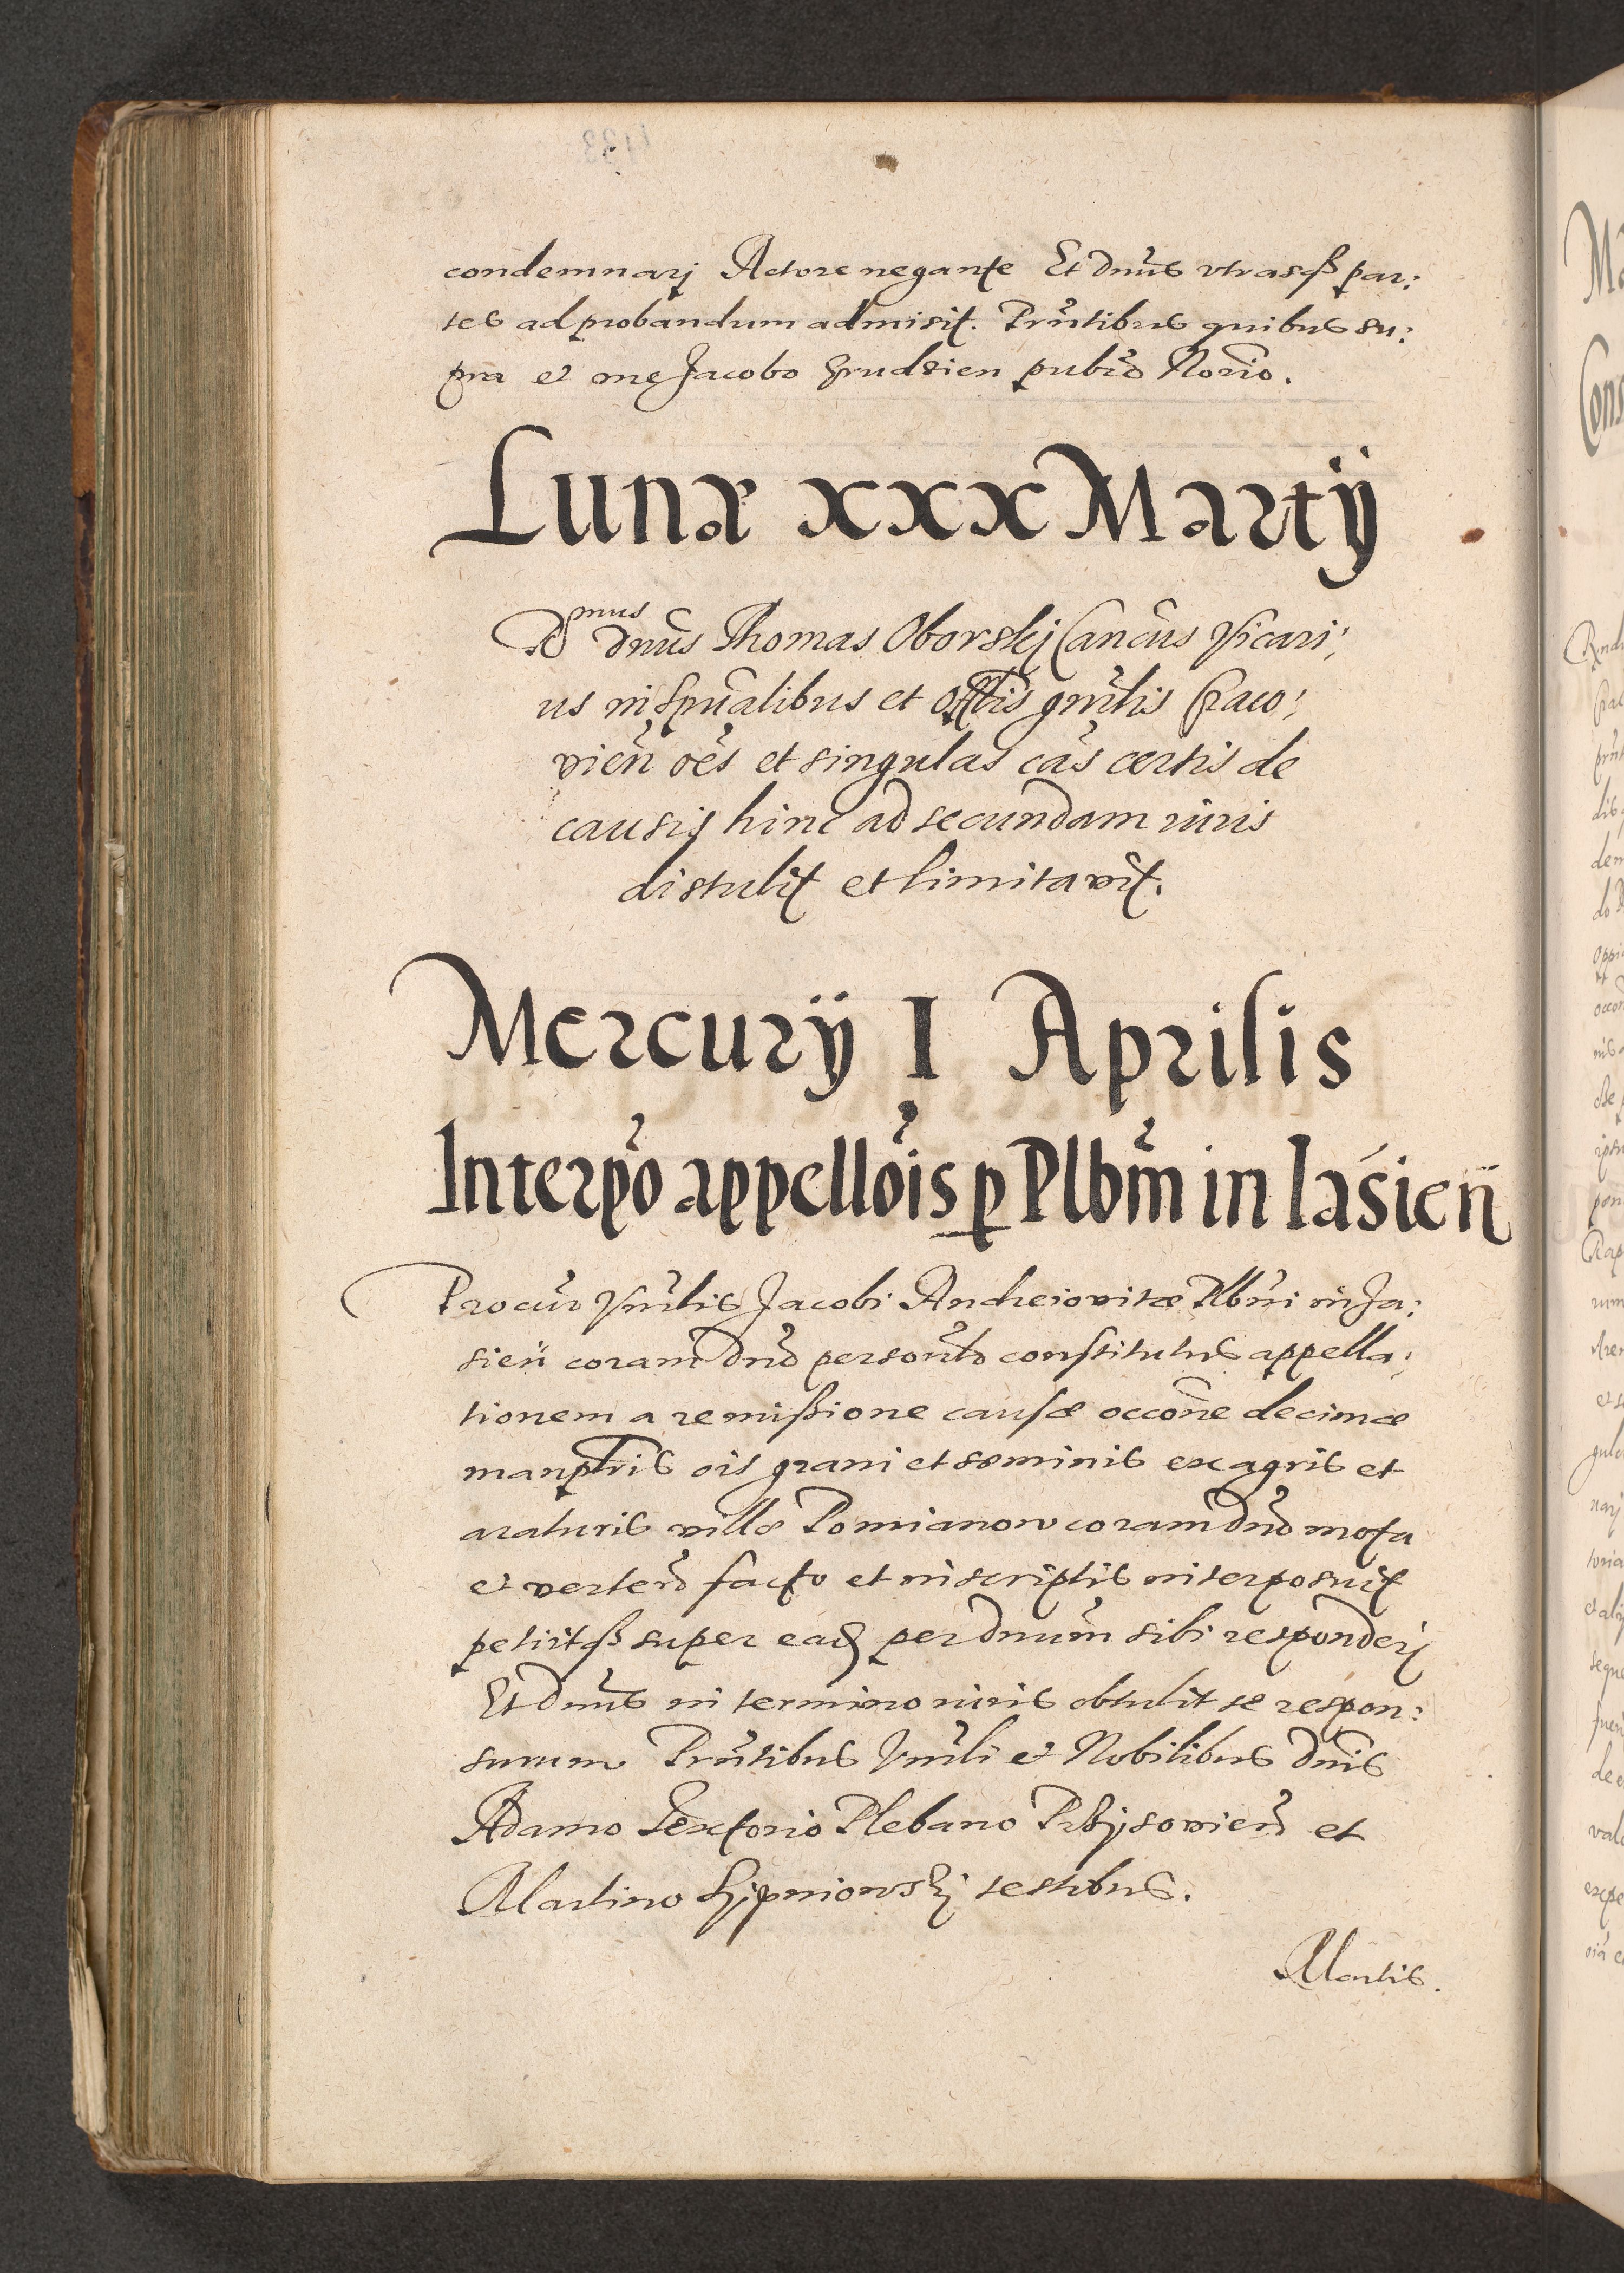 condemnarj Actore negante Et Dnus vtrasq par:
tes ad probandum admisit. Prntibus quibus su:
pra et me Jacobo Grudzien publo Norio.
Lunæ xxx Martij
Rmus Dnus Thomas Oborskj Cancus Vicari:
us in spualibus et offlis gnrlis Craco:
vien oes et singulas cas certis de
causis hinc ad secundam iuris
distulit et limitavit.
Mercurij I Aprilis
Interpo appellois p Plbm in Iasien
Procur Vnrlis Jacobi Andreiovitæ Plbni in Ja:
sien coram Dno personlr constitutus appella:
tionem a remissione causæ occone decimæ
manplris ois grani et seminis ex agris et
araturis villæ Pomianow coram Dno mota
et verten facto et in scriptis interposuit
petiitq super ead per Dnum sibi responderj
Et Dnus in termino iuris obtulit se respon:
surum Prntibus Vnrli et Nobilibus Dnis
Adamo Textorio Plebano Przysovien et
Martino testibus.
Martis.